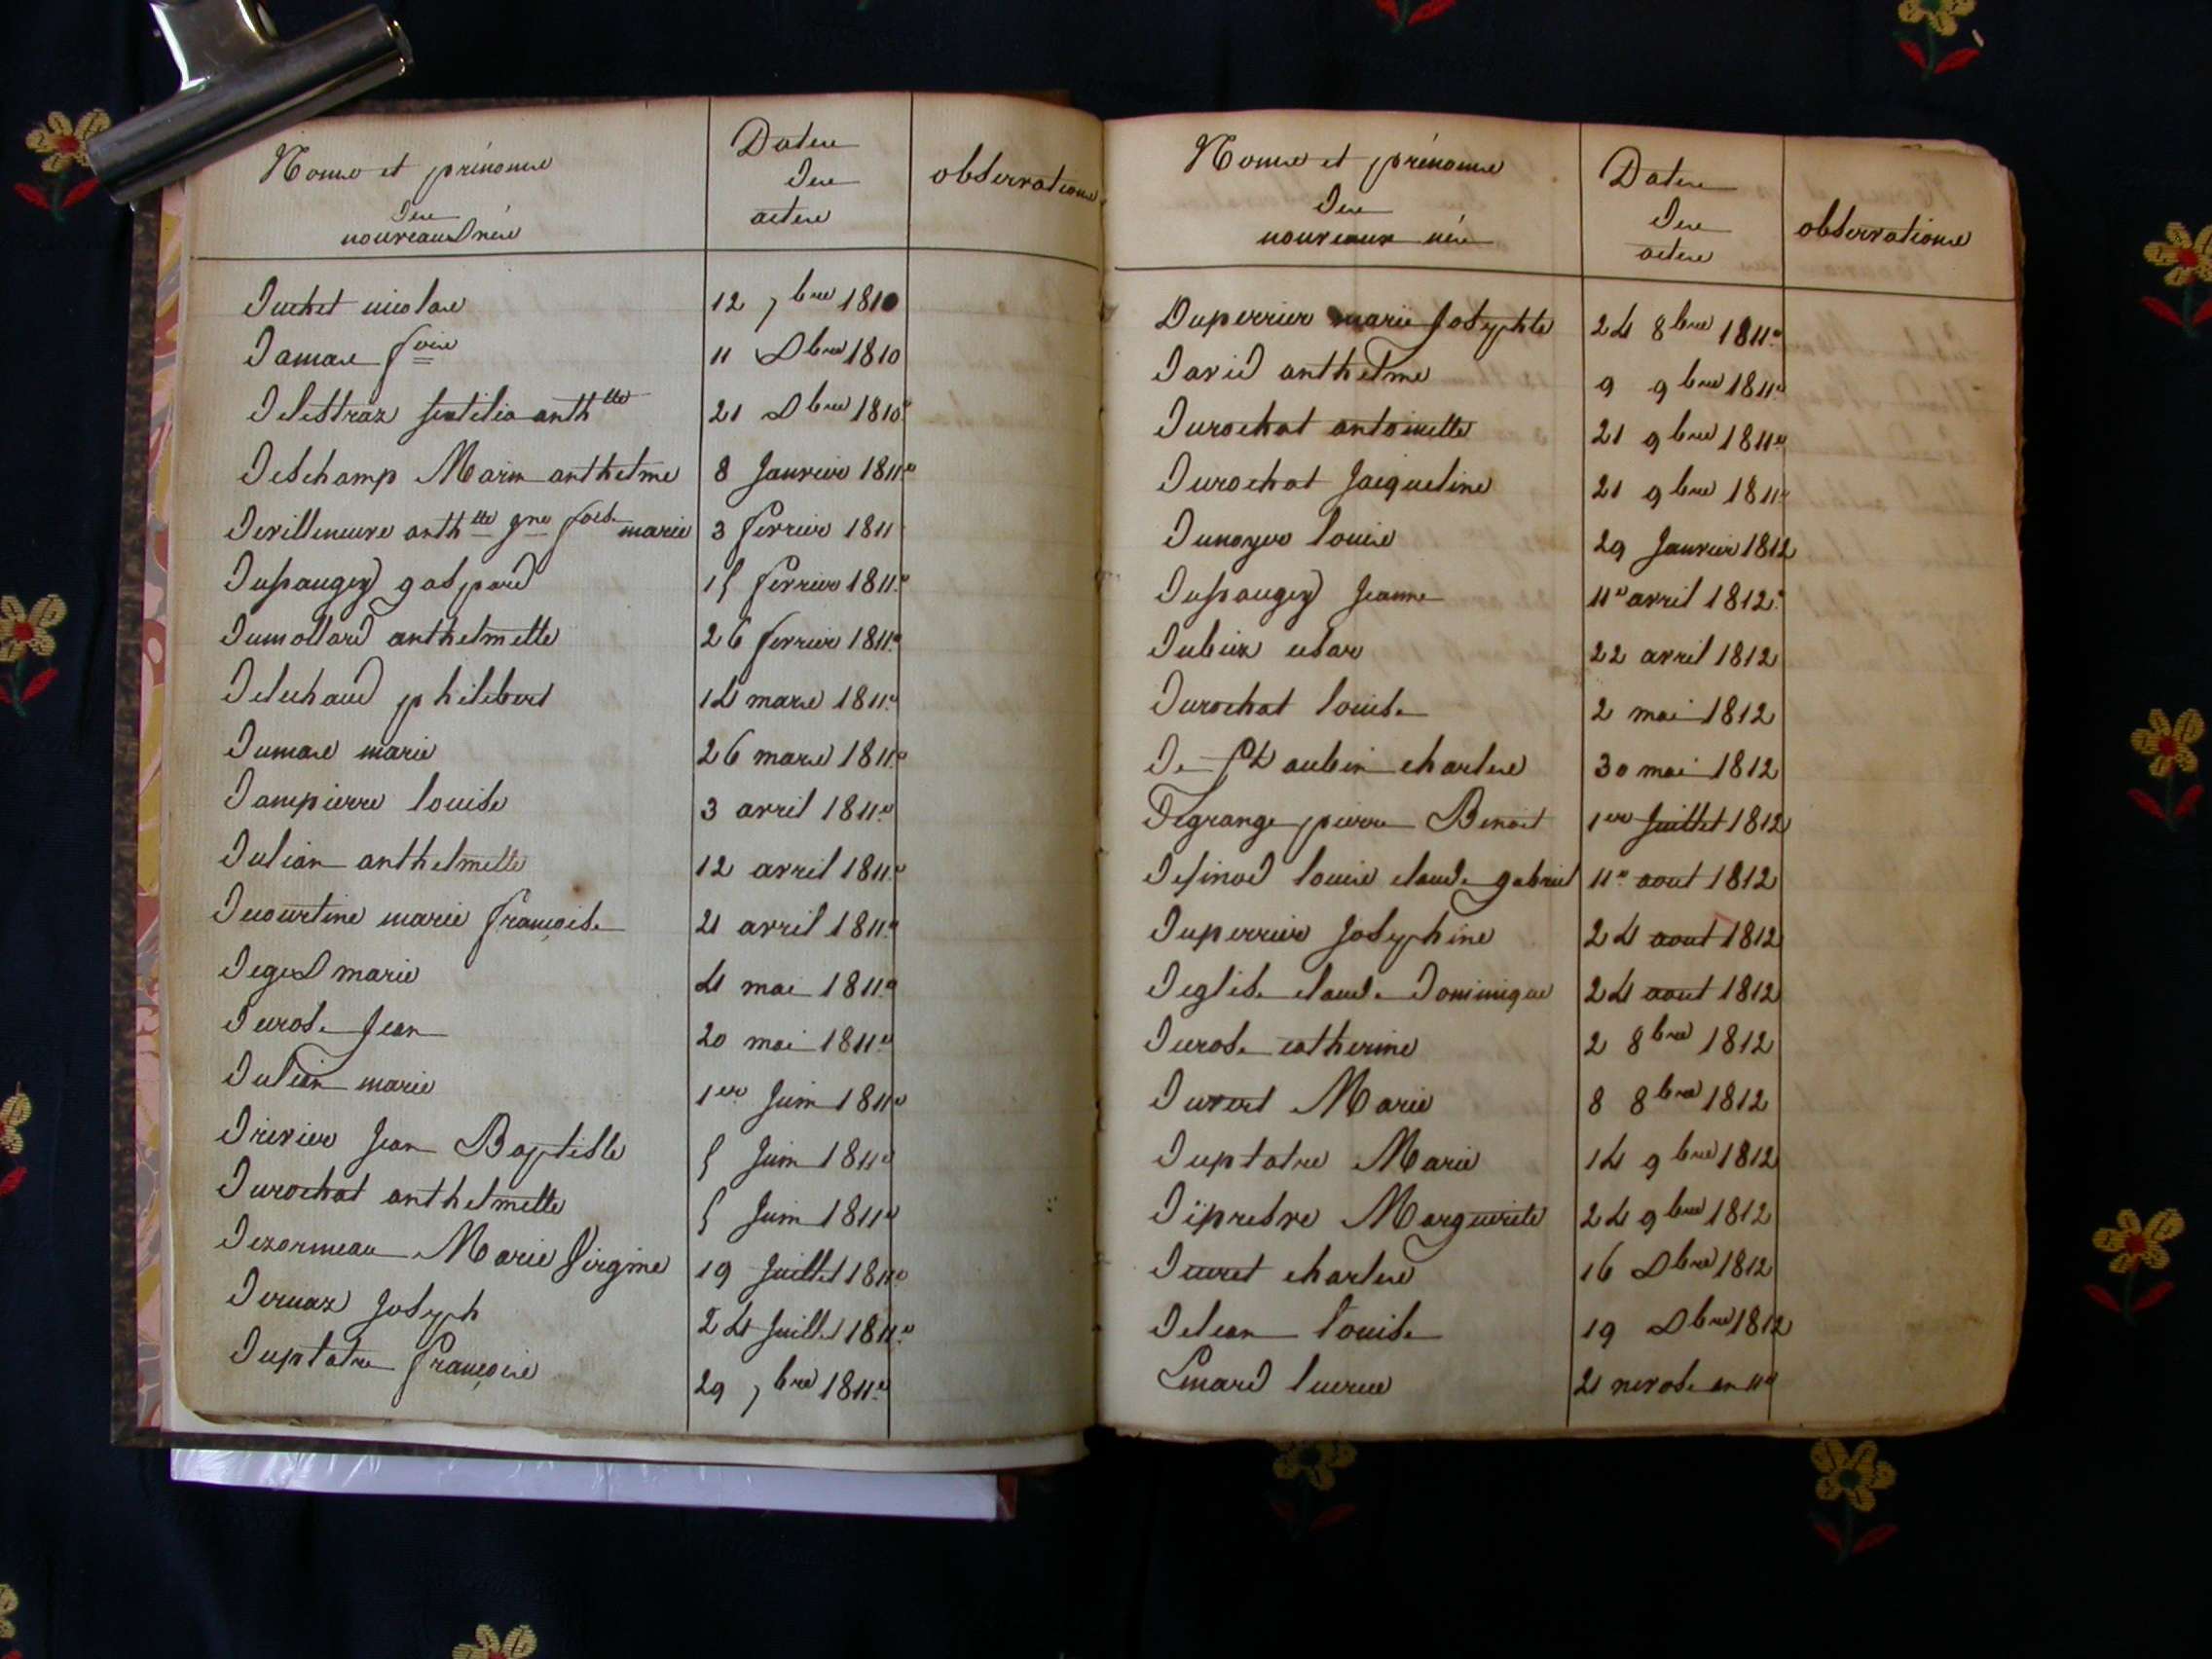 Noms et prénoms
des
nouveaux nés
Dates
des
actes
observations
Duchet nicolas 12 7bre 1810
Damas fois 11 Dbre 1810
Delestraz anthtte 21 Dbre 1810
Deschamp Marin anthelme 8 Janvier 1811
Devilleneuve anthtte marie 3 fevrier 1811
Dussaugey gaspard 15 fevrier 1811
Dumollard anthelmette 26 fevrier 1811
Deluhaud philibert 14 mars 1811
Dumas marie 26 mars 1811
Dampierre louise 3 avril 1811
Dulian anthelmette 12 avril 1811
Ducurtine marie françoise 21 avril 1811
marie 4 mai 1811
Jean 20 mai 1811
Dulian marie 1er Juin 1811
Drevier Jean Baptiste 5 Juin 1811
Durochat anthelmette 5 Juin 1811
Dezormeau Marie Virginie 19 Juillet 1811
Dernaz Joseph 24 Juillet 1811
Duplatre françois 29 7bre 1811
Noms et prénoms
des
nouveaux nés
Dates
des
actes
observations
Duperrier marie Josephte 24 8bre 1811
David anthelme 9 9bre 1811
Durochat antoinette 21 9bre 1811
Durochat Jacqueline 21 9bre 1811
Dunoyer louis 29 Janvier 1812
Dussaugey Jeanne 11 avril 1812
cesar 22 avril 1812
Durochat louise 2 mai 1812
De St aubin charles 30 mai 1812
Degrange pierre Benoit 1er Juillet 1812
Desinod louis claude gabriel 11 aout 1812
Duperrier Josephine 24 aout 1812
Deglise claude Dominique 24 aout 1812
catherine 2 8bre 1812
Duvert Marie 8 8bre 1812
Duplatre Marie 14 9bre 1812
Dïprestre Marguerite 24 9bre 1812
charles 16 Dbre 1812
Delean louise 19 Dbre 1812
21 nivose an 11